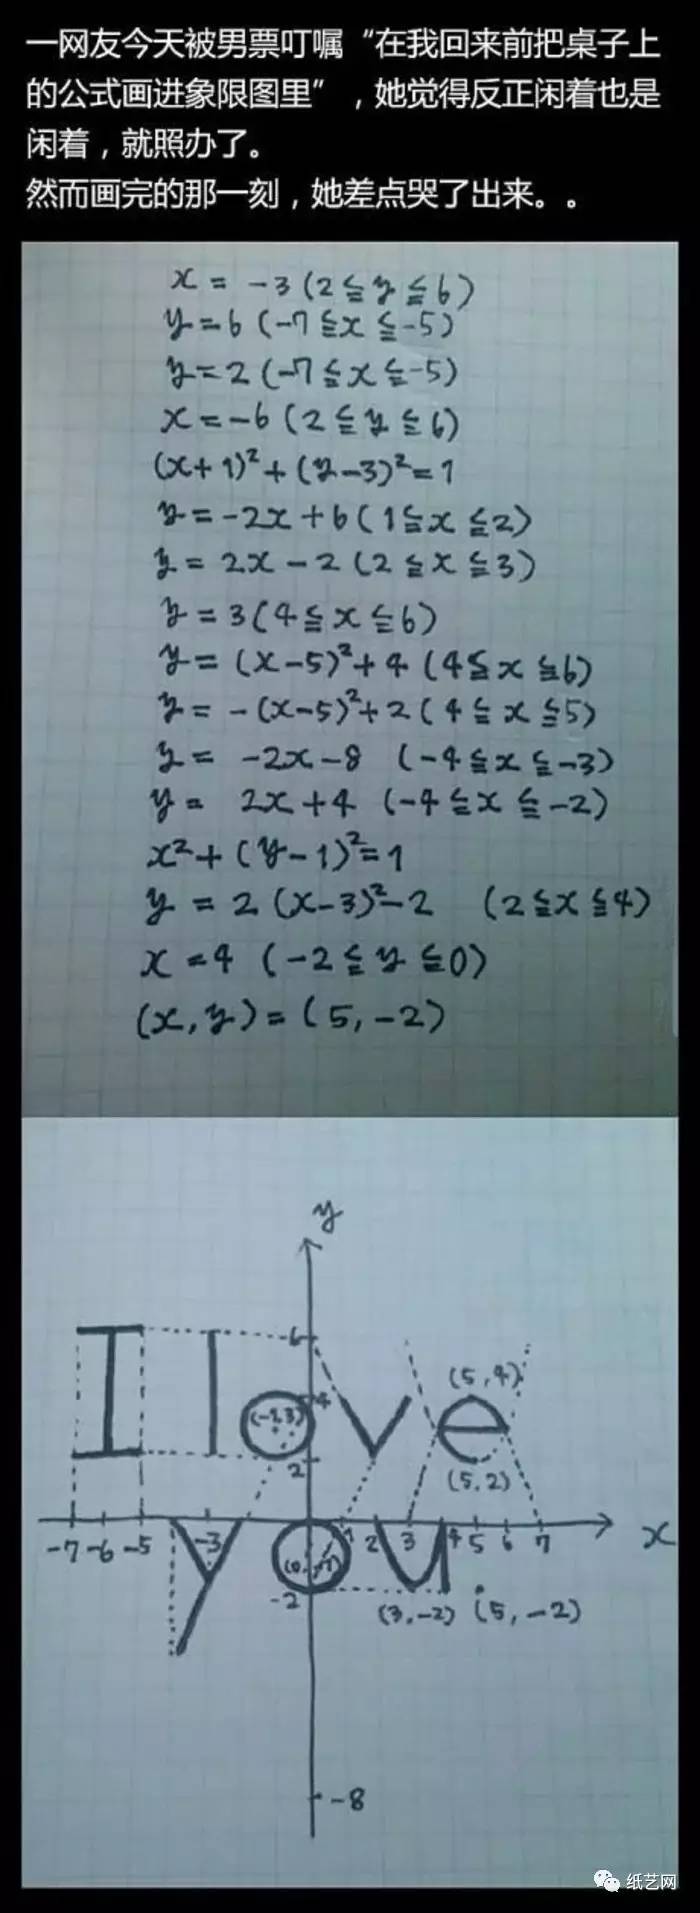 一网友今天被男票叮嘱“在我回来前把桌子上
的公式画进象限图里”，她觉得反正闲着也是
闲着，就照办了。
然而画完的那一刻，她差点哭了出来。。
x = -3 (2 ≦ y ≦ 6)
y = 6 (-7 ≦ x ≦ -5)
y = 2 (-7 ≦ x ≦ -5)
x = -6 (2 ≦ y ≦ 6)
(x+1)² + (y-3)² = 1
y = -2x + 6 (1 ≦ x ≦ 2)
y = 2x - 2 (2 ≦ x ≦ 3)
y = 3 (4 ≦ x ≦ 6)
y = (x-5)² + 4 (4 ≦ x ≦ 6)
y = -(x-5)² + 2 (4 ≦ x ≦ 5)
y = -2x - 8 (-4 ≦ x ≦ -3)
y = 2x + 4 (-4 ≦ x ≦ -2)
x² + (y-1)² = 1
y = 2 (x-3)² - 2 (2 ≦ x ≦ 4)
x = 4 (-2 ≦ y ≦ 0)
(x, y) = (5, -2)
y
6
I love
(5, 4)
4
(-1,3)
2
(5, 2)
-7 -6 -5 -3 1 2 3 4 5 6 7 x
you
-2
(3, -2) (5, -2)
-8
纸艺网